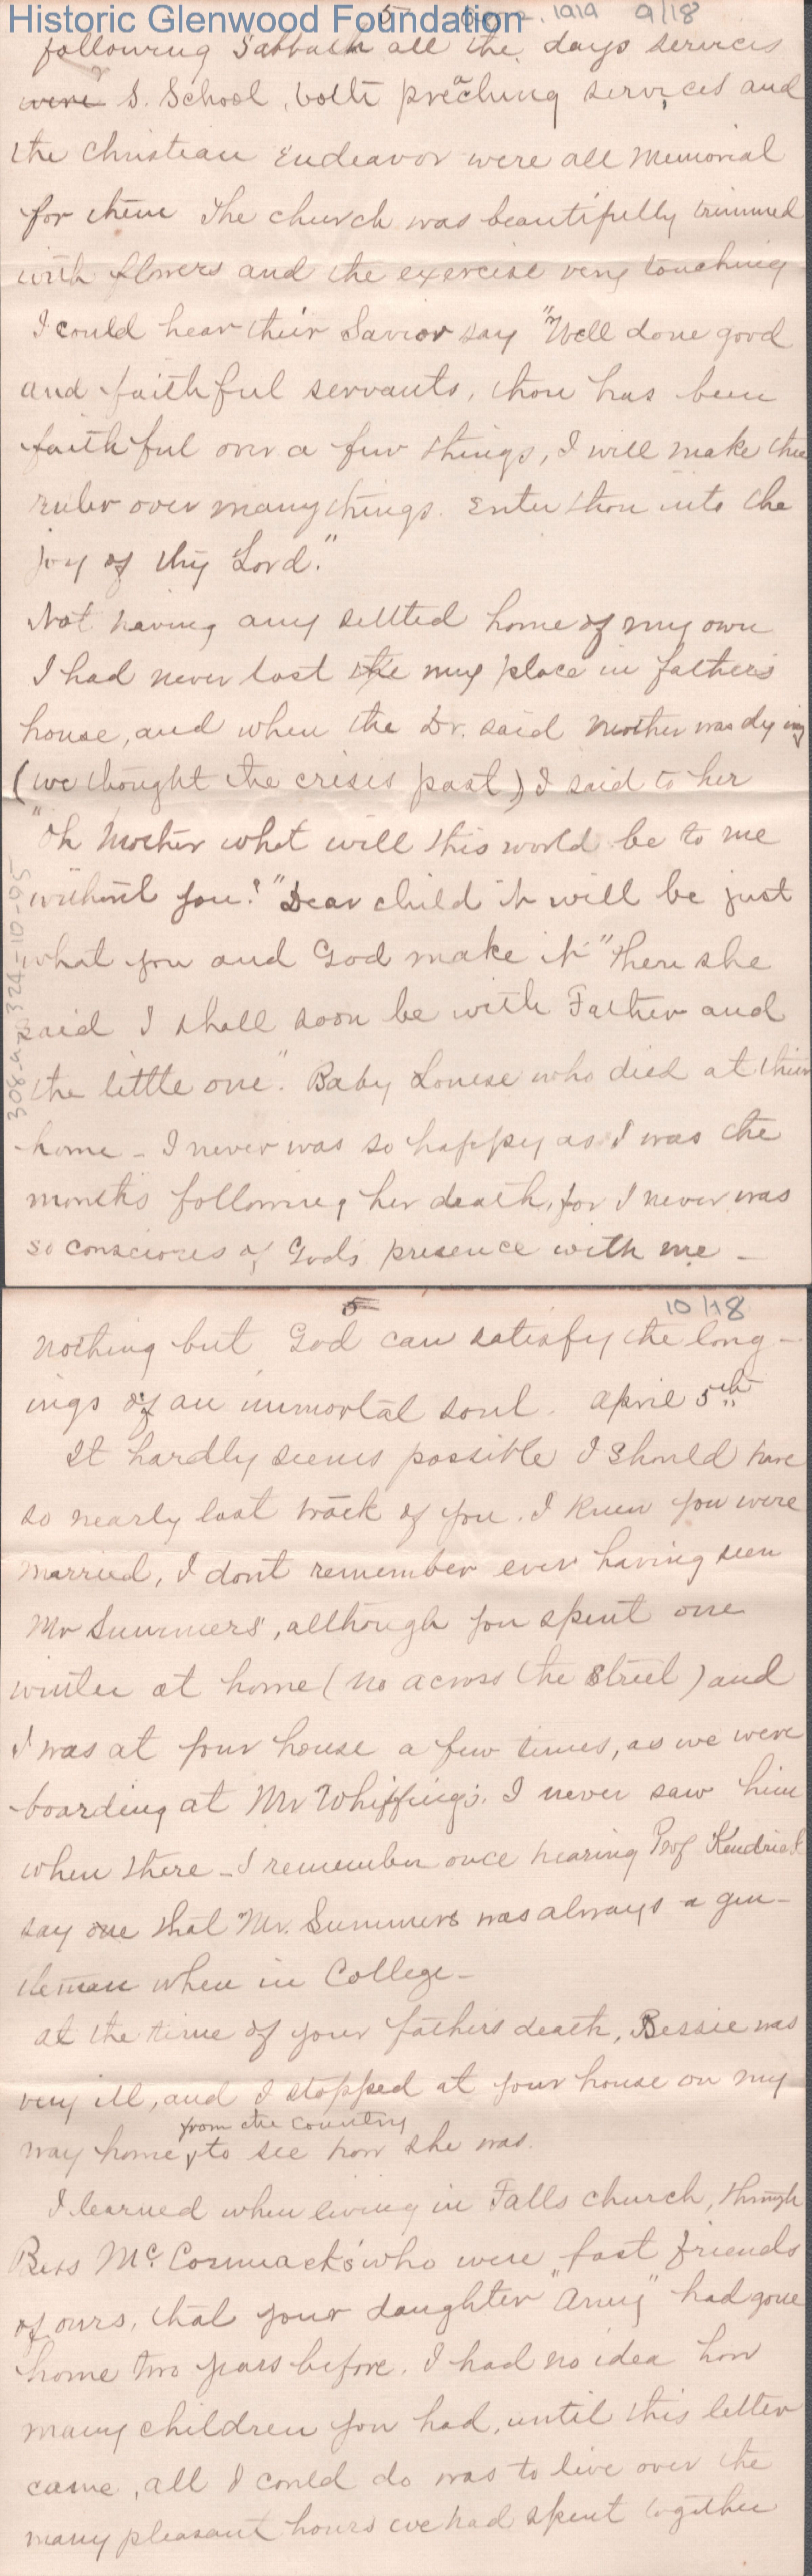 Historic Glenwood Foundation
5 1919 9/18
following Sabbath all the days services
were S. School, both preaching services and
the Christian Endeavor were all Memorial
for them The church was beautifully trimmed
with flowers and the exercise very touching
I could hear their Savior say "Well done good
and faithful servants, thou has been
faithful over a few things, I will make thee
ruler over many things. Enter thou into the
joy of thy Lord."
Not having any settled home of my own
I had never lost the my place in father's
house, and when the Dr. said Mother was dying
(we thought the crisis past) I said to her
"Oh Mother what will this world be to me
without you!" "Dear child it will be just
what you and God make it" Then she
said I shall soon be with Father and
the little one". Baby Louise who died at their
home - I never was so happy as I was the
months following her death, for I never was
so conscious of God's presence with me -
308-a-324-10-95
5 10/18
nothing but God can satisfy the long-
ings of an immortal soul. April 5th
It hardly seems possible I should have
so nearly lost track of you. I knew you were
married, I dont remember ever having seen
Mr Summers, although you spent one
winter at home (no across the street) and
I was at your house a few times, as we were
boarding at Mr Whiffing's. I never saw him
when there - I remember once hearing Prof Kendrick
say one that Mr. Summers was always a gen-
tleman when in College -
at the time of your fathers death, Bessie was
very ill, and I stopped at your house on my
way home from the country to see how she was.
I learned when living in Falls church, through
Bess McCormack's who were fast friends
of ours, that your daughter "Amy" had gone
home two years before. I had no idea how
many children you had, until this letter
came, all I could do was to live over the
many pleasant hours we had spent together